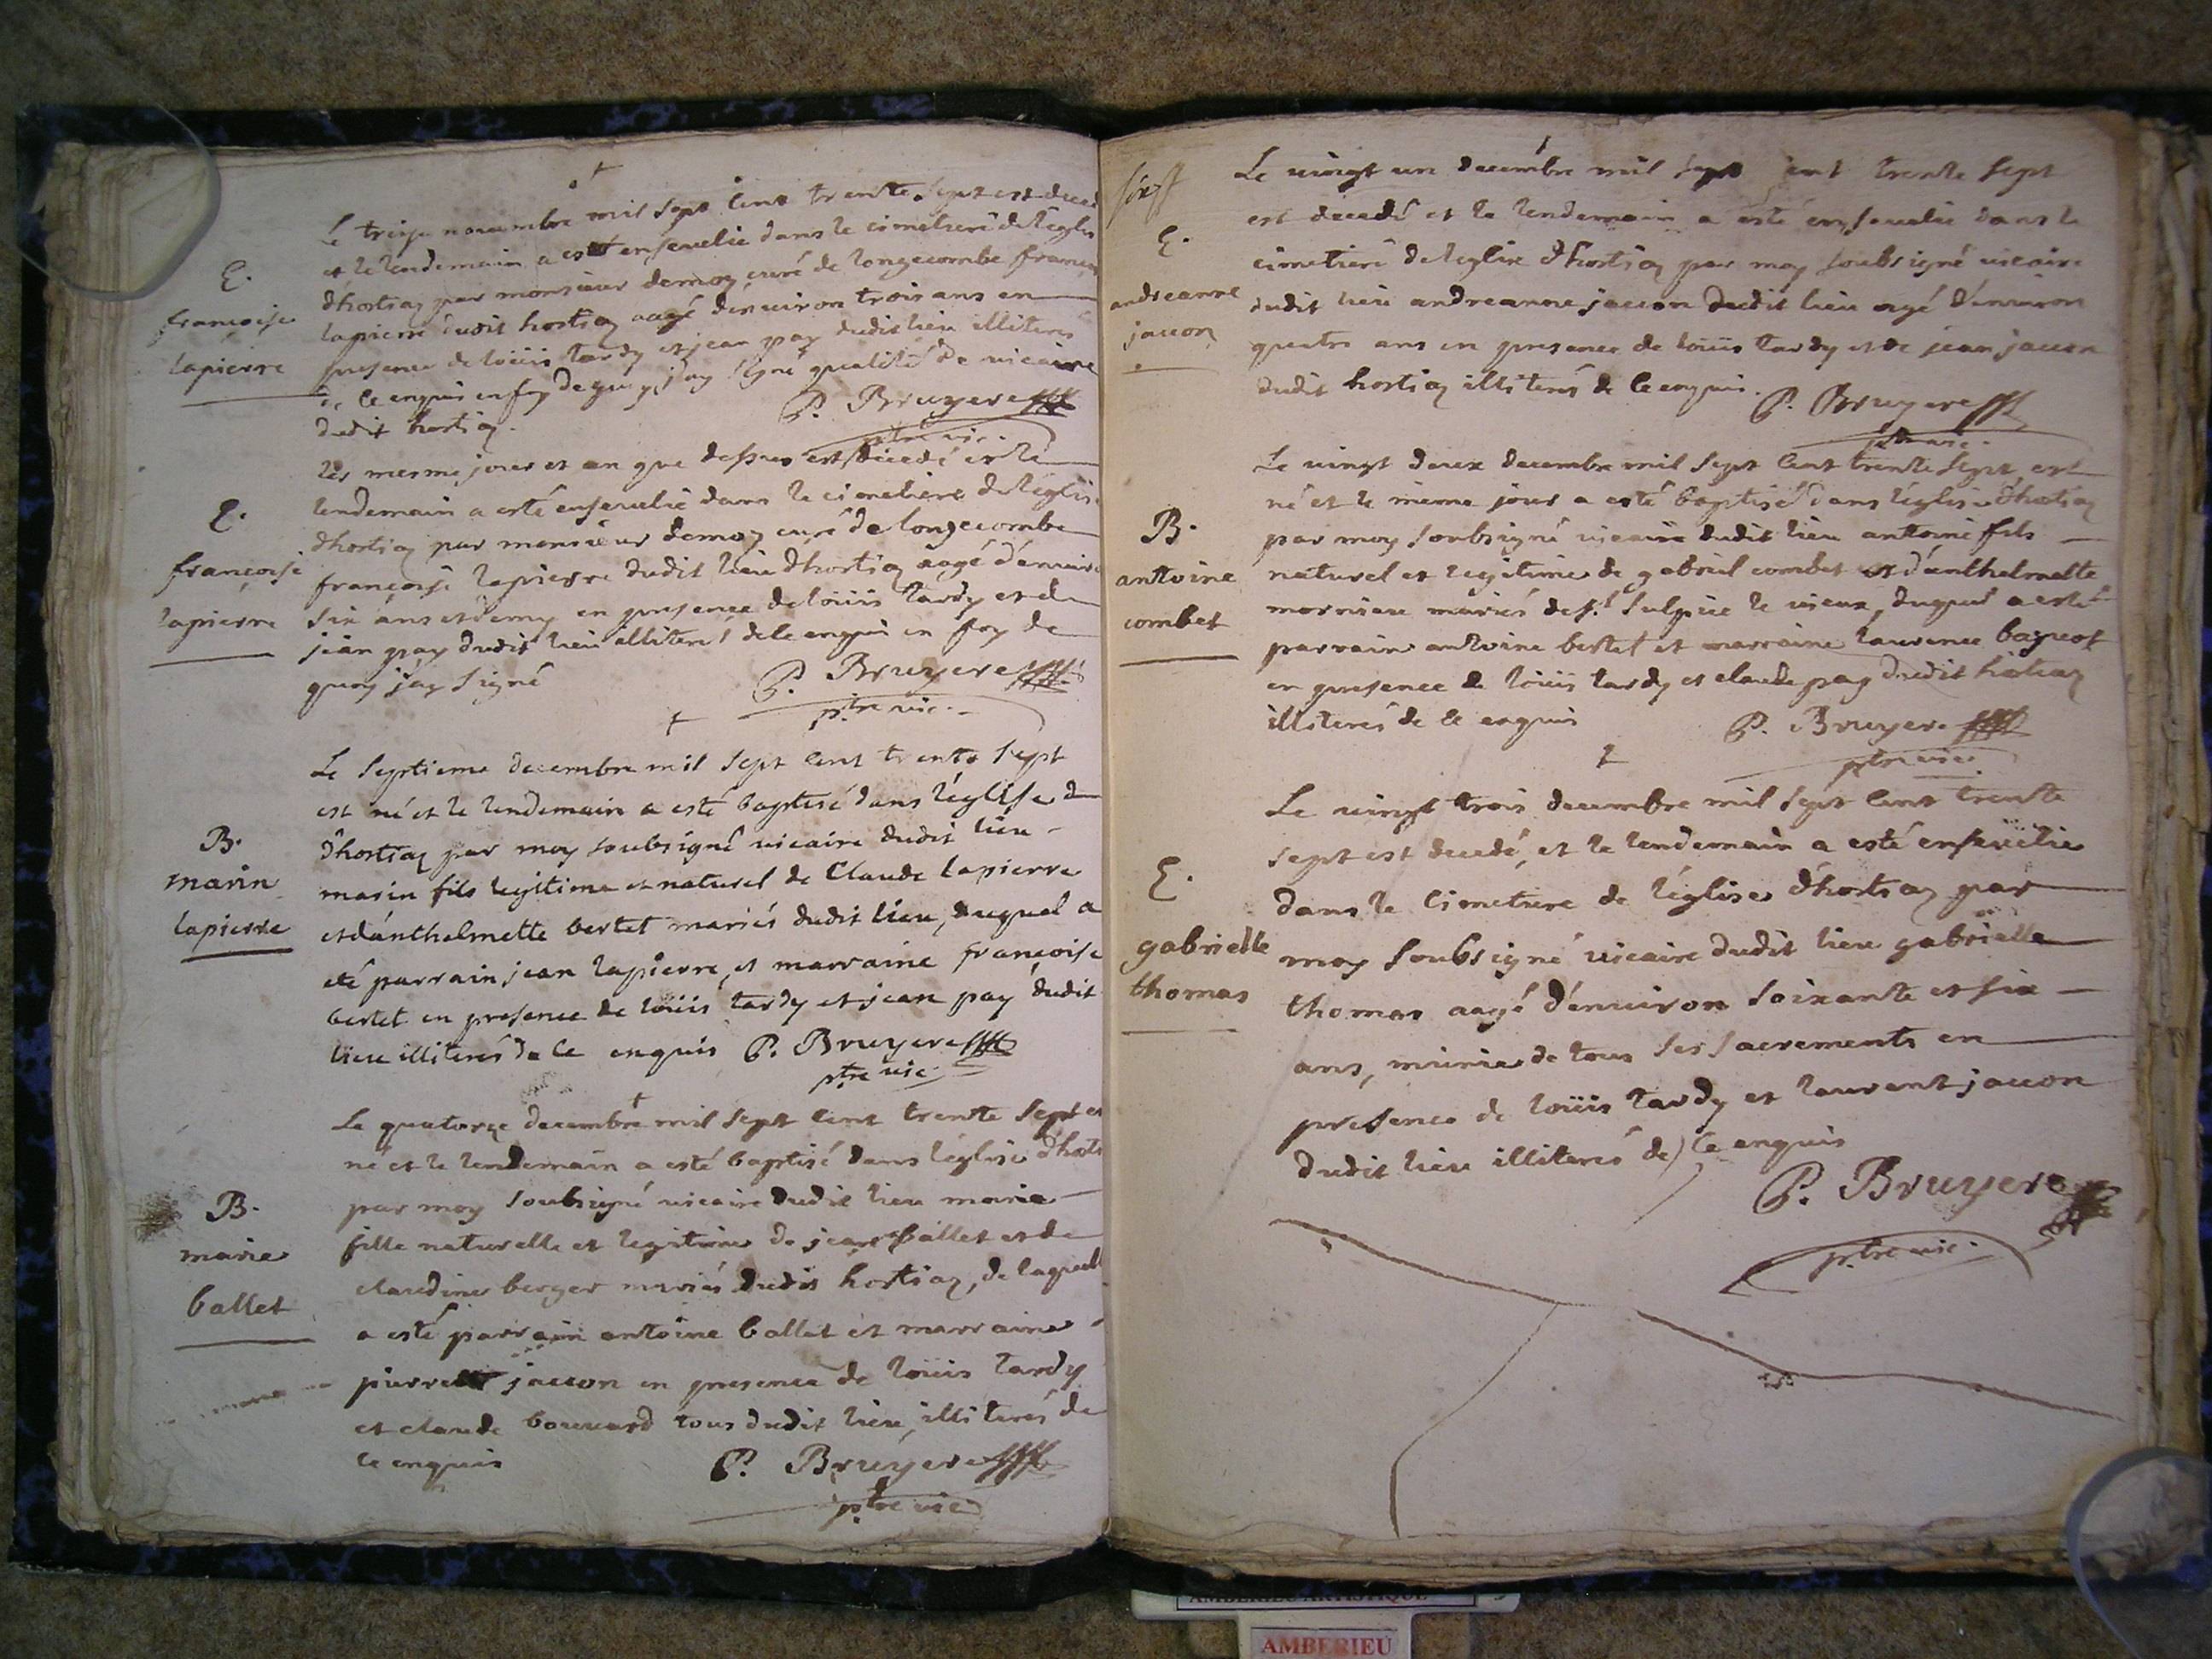 E.
françoise
lapierre
Le treize novembre mil sept cent trente sept est deced
et le lendemain a esté ensevelie dans le cimetiere de l'eglis
d'hostiaz par monsieur demoz curé de longecombe françois
lapierre dudit hostiaz aagé d'enuiron trois ans en
presence de loüis tardy et jean pay dudit lieu illiterés
de ce enquis en foy de quoy j'ay signé qualité de vicaire
dudit hostiaz.
P. Bruyere
ptre vic.
E.
françoise
lapierre
Les mesme jour et an que dessus est decedé et le
lendemain a esté enseuelie dans le cimetiere de l'eglise
d'hostiaz par monsieur demoz curé de longecombe
françoise lapierre dudit lieu d'hostiaz aagé d'enuiro
six ans et demy en presence de loüis tardy et de
jean pay dudit lieu illiterés de ce enquis en foy de
quoy j'ay signé
P. Bruyere
ptre vic.
B.
marin
lapierre
Le septieme decembre mil sept cent trente sept
est né et le lendemain a esté baptisé dans l'église d
d'hostiaz par moy soubsigné uicaire dudit lieu
marin fils legitime et naturel de Claude lapierre
et d'anthelmette bertet mariés dudit lieu, duquel a
eté parrain jean lapierre, et marraine françoise
bertet en presence de loüis tardy et jean pay dudit
lieu illiterés de ce enquis P. Bruyere
ptre vic.
B.
marie
ballet
Le quatorze decembre mil sept cent trente sept es
né et le lendemain a esté baptisé dans l'église d'hosti
par moy soubsigné uicaire dudit lieu marie
fille naturelle et legitime de jean ballet et de
claudine berger mariés dudit hostiaz, de laquell
a esté parrain antoine ballet et marraine
pierrette jacon en presence de loüis tardy
et claude bouuard tous dudit lieu, illiterés de
ce enquis
P. Bruyere
ptre vic
E.
andreanne
jacon
Le vingt un decembre mil sept cent trente sept
est decedé et le lendemain a esté enseuelie dans le
cimetiere de l'eglise d'hostiaz par moy soubsigné uicaire
dudit lieu andreanne jacon dudit lieu agé d'enuiron
quatre ans en presence de loüis tardy et de jean jacon
dudit hostiaz illiterés de ce enquis.
P. Bruyere
ptre vic.
B.
antoine
combet
Le vingt deux decembre mil sept cent trente sept est
né et le méme jour a esté baptisé dans l'église d'hostiaz
par moy soubsigné uicaire dudit lieu antoine fils
naturel et legitime de gabriel combet et d'anthelmette
mariés de st sulpice le vieux, duquel a esté
parrain antoine bertet et marraine laurence
en presence de loüis tardy et claude pay dudit hostiaz
illiterés de ce enquis
P. Bruyere
ptre vic.
E.
gabrielle
thomas
Le vingt trois decembre mil sept cent trente
sept est decedé, et le lendemain a esté enseuelie
dans le cimetiere de l'église d'hostiaz par
moy soubsigné vicaire dudit lieu gabrielle
thomas aagé d'enuiron soixante et six
ans, munie de tous ses sacrements en
presence de loüis tardy et laurent jacon
dudit lieu illiterés de ce enquis
P. Bruyere
ptre vic.
AMBERIEU ARTISTIQUE
AMBERIEU